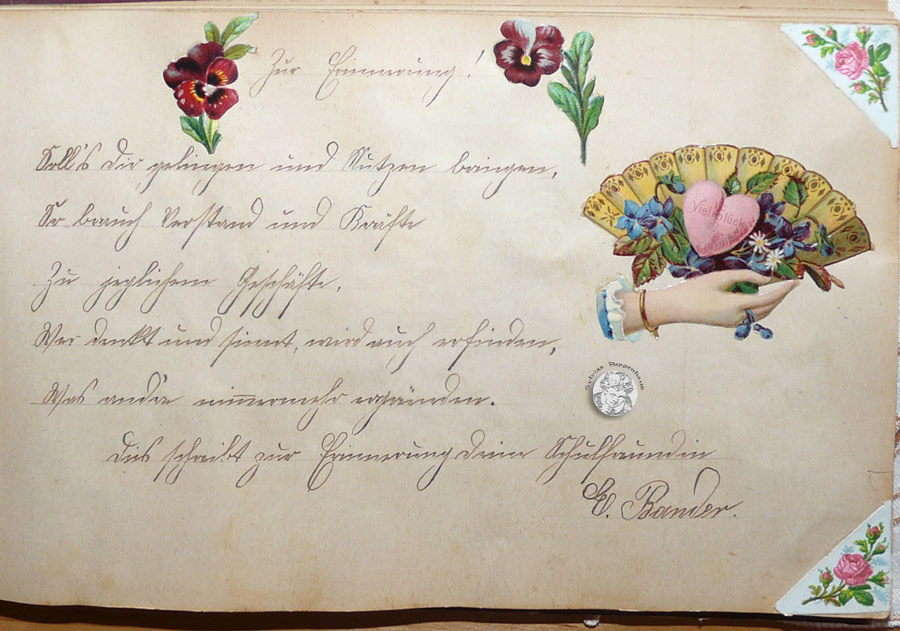 Zur Erinnerung!
Soll's Dir gelingen und Nutzen bringen,
So brauch Verstand und Kräfte
Zu jeglichem Geschäfte.
Wer denkt und sinnt, wird auch erfinden,
Was and're nimmermehr ergründen.
Dies schreibt zur Erinnerung Deine Schulfreundin
E. Bander.
Viel Glück
Sylvias Puppenhaus